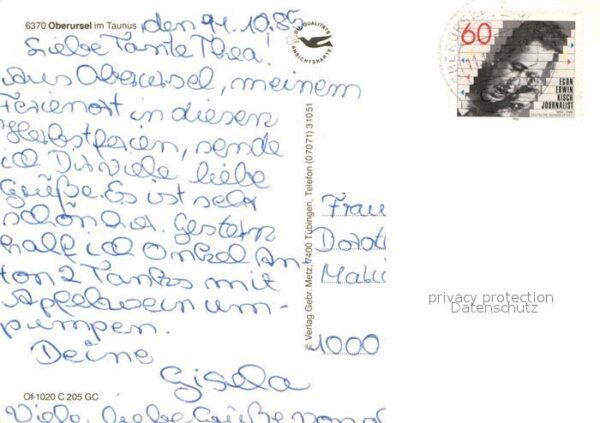 6370 Oberursel im Taunus den 9.10.85
Liebe Tante Thea!
Aus Oberursel, meinem
Ferienort in diesen
Herbstferien, sende
ich Dir viele liebe
Grüße. Es ist sehr
schön hier. Gestern
half ich Onkel An-
ton 2 Tanks mit
Apfelwein um-
pumpen.
Deine
Gisela
Of-1020 C 205 GC
Viele liebe Grüße von
DIE QUALITÄTS
ANSICHTSKARTE
© Verlag Gebr. Metz, 7400 Tübingen, Telefon (07071) 31051
60
EGON
ERWIN
KISCH
JOURNALIST
DEUTSCHE BUNDESPOST
Frau
Dorot
1000
privacy protection
Datenschutz